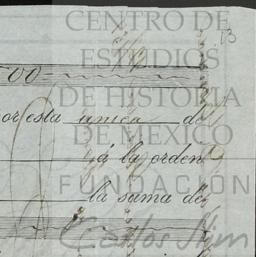 CENTRO DE
ESTUDIOS
DE HISTORIA
DE MEXICO
FUNDACIÓN
Carlos Slim
13
00=
or esta unica de
á la orden
la suma de